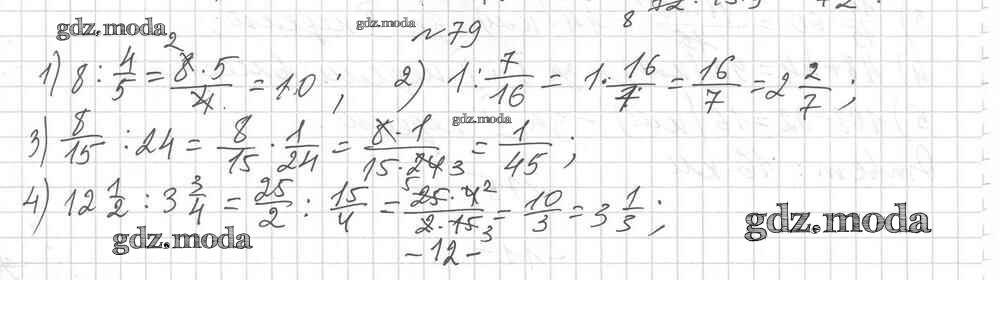 8
gdz.moda
gdz.moda
№ 79
1) 8 : 4/5 = 8·5/4 = 10 ; 2) 1 : 7/16 = 1·16/7 = 16/7 = 2 2/7 ;
2
gdz.moda
3) 8/15 : 24 = 8/15 · 1/24 = 8·1/15·24 3 = 1/45 ;
4) 12 1/2 : 3 3/4 = 25/2 : 15/4 = 5 25·4 2/2·15 3 = 10/3 = 3 1/3 ;
gdz.moda
gdz.moda
- 12 -